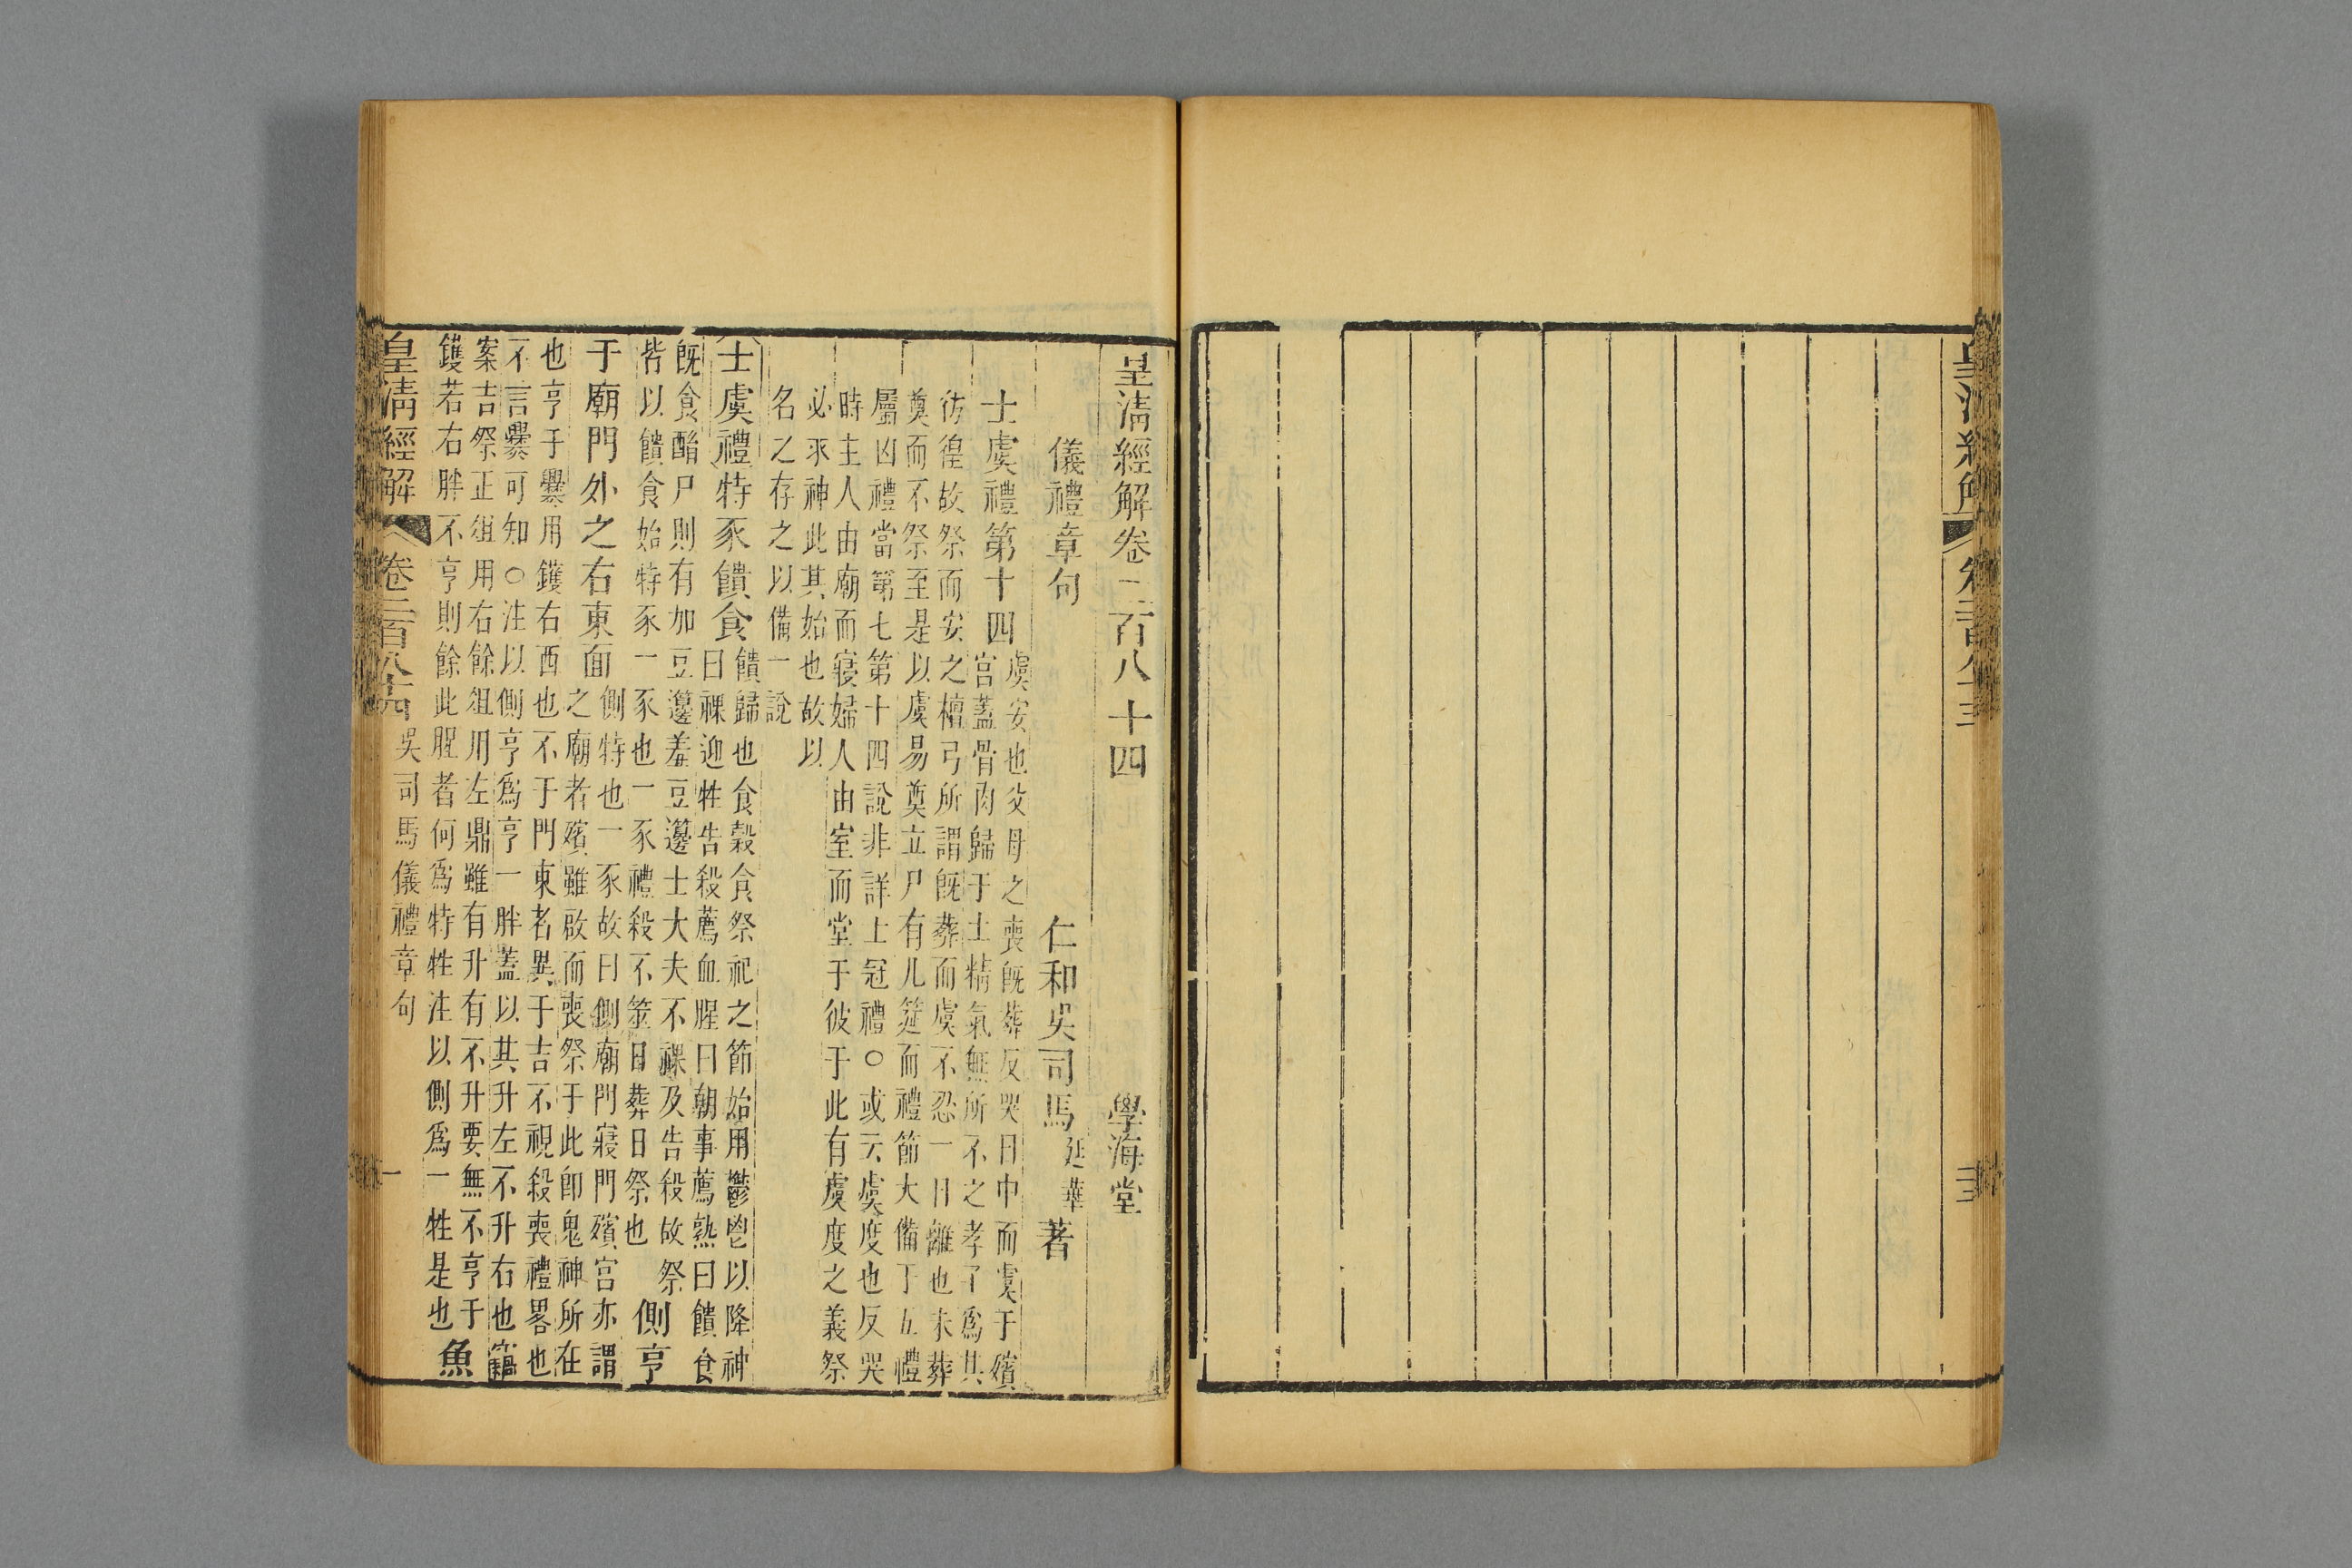 皇清經解卷二百八十四
學海堂
儀禮章句
仁和吳司馬廷華著
士虞禮第十四
虞安也父母之喪既葬反哭日中而虞于殯
宮蓋骨肉歸于土精氣無所不之孝子爲其
彷徨故祭而安之檀弓所謂既葬而虞不忍一日離也未葬
奠而不祭至是以虞易奠立尸有几筵而禮節大備于五禮
屬凶禮當第七第十四說非詳上冠禮○或云虞度也反哭
時主人由廟而寢婦人由室而堂于彼于此有虞度之義祭
必求神此其始也故以
名之存之以備一說
士虞禮特豕饋食
饋歸也食榖食祭祀之節始用鬱鬯以降神
曰祼迎牲告殺薦血腥曰朝事薦熟曰饋食
既食酳尸則有加豆籩羞豆籩士大夫不祼及告殺故祭
皆以饋食始特豕一豕也一豕禮殺不筮日葬日祭也
側亨
于廟門外之右東面
側特也一豕故曰側廟門寢門殯宮亦謂
之廟者殯雖啟而喪祭于此卽鬼神所在
也亨于爨用鑊右西也不于門東者異于吉不視殺喪禮畧也
不言爨可知○注以側亨爲亨一胖蓋以其升左不升右也竊
案吉祭正俎用右餘俎用左鼎雖有升有不升要無不亨于
鑊若右胖不亨則餘此腥者何爲特牲注以側爲一牲是也
魚
皇清經解
卷二百八十四
吳司馬儀禮章句
一